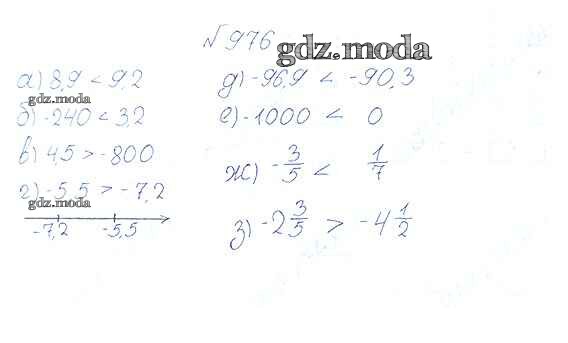 №976
gdz.moda
а) 8,9 < 9,2
gdz.moda
б) -240 < 3,2
в) 4,5 > -800
г) -5,5 > -7,2
gdz.moda
-7,2 -5,5
д) -96,9 < -90,3
е) -1000 < 0
ж) -3/5 < 1/7
з) -2 3/5 > -4 1/2